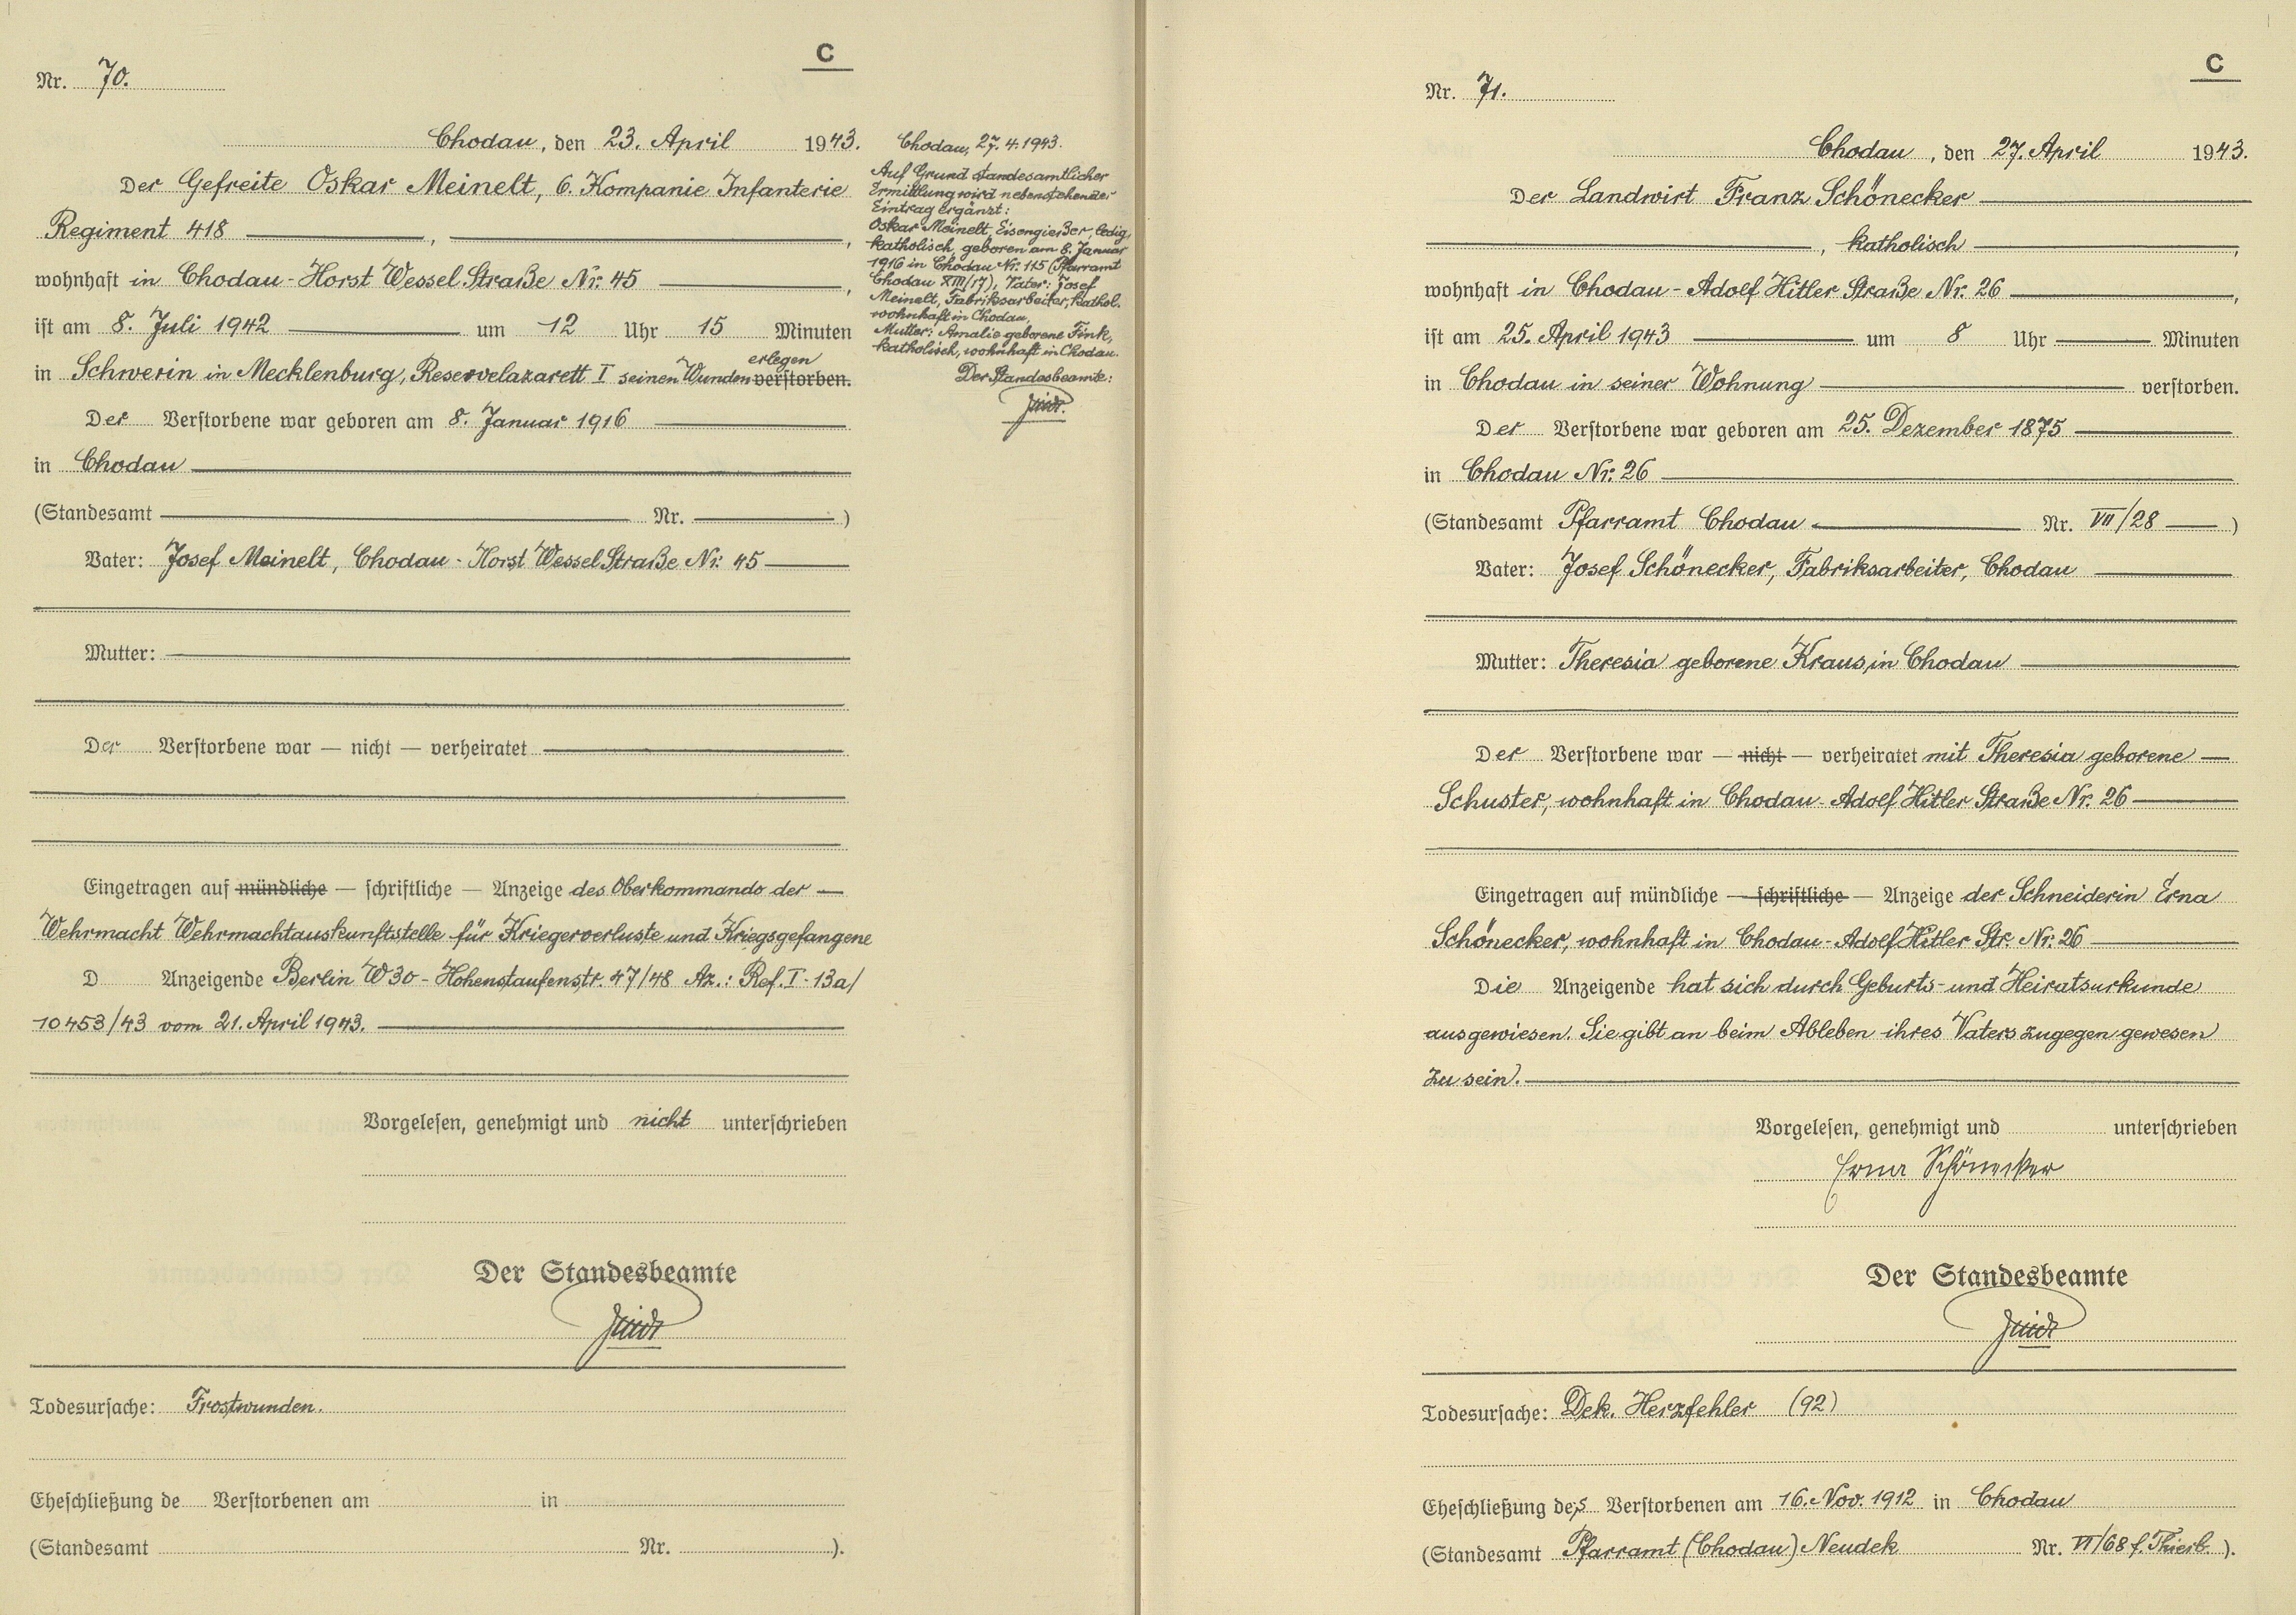 C
Nr. 70.
Chodau, den 23. April 1943.
Der Gefreite Oskar Meinelt, 6. Kompanie Infanterie
Regiment 418 , ,
wohnhaft in Chodau - Horst Wessel Straße Nr. 45 ,
ist am 8. Juli 1942 um 12 Uhr 15 Minuten
erlegen
in Schwerin in Mecklenburg, Reservelazarett I seinen Wunden verstorben.
Der Verstorbene war geboren am 8. Januar 1916
in Chodau
(Standesamt Nr. )
Vater: Josef Meinelt, Chodau - Horst Wessel Straße Nr. 45
Mutter:
Der Verstorbene war — nicht — verheiratet
Eingetragen auf mündliche — schriftliche — Anzeige des Oberkommando der
Wehrmacht Wehrmachtauskunftstelle für Kriegerverluste und Kriegsgefangene
D Anzeigende Berlin W 30 - Hohenstaufenstr. 47/48 Az.: Ref. I - 13a/
10453/43 vom 21. April 1943.
Vorgelesen, genehmigt und nicht unterschrieben
Der Standesbeamte
Todesursache: Frostwunden.
Eheschließung de Verstorbenen am in
(Standesamt Nr. ).
Chodau, 27.4.1943.
Auf Grund standesamtlicher
Ermittlung wird nebenstehender
Eintrag ergänzt:
Oskar Meinelt, Eisengießer, ledig,
katholisch, geboren am 8. Januar
1916 in Chodau Nr. 115 (Pfarramt
Chodau XIII/17), Vater: Josef
Meinelt, Fabriksarbeiter, kathol.
wohnhaft in Chodau,
Mutter: Amalie geborene Fink,
katholisch, wohnhaft in Chodau.
Der Standesbeamte:
C
Nr. 71.
Chodau, den 27. April 1943.
Der Landwirt Franz Schönecker
, katholisch ,
wohnhaft in Chodau - Adolf Hitler Straße Nr. 26 ,
ist am 25. April 1943 um 8 Uhr Minuten
in Chodau in seiner Wohnung verstorben.
Der Verstorbene war geboren am 25. Dezember 1875
in Chodau Nr. 26
(Standesamt Pfarramt Chodau Nr. VII/28 )
Vater: Josef Schönecker, Fabriksarbeiter, Chodau
Mutter: Theresia geborene Kraus, in Chodau
Der Verstorbene war — nicht — verheiratet mit Theresia geborene
Schuster, wohnhaft in Chodau - Adolf Hitler Straße Nr. 26
Eingetragen auf mündliche — schriftliche — Anzeige der Schneiderin Erna
Schönecker, wohnhaft in Chodau - Adolf Hitler Str. Nr. 26
Die Anzeigende hat sich durch Geburts- und Heiratsurkunde
ausgewiesen. Sie gibt an beim Ableben ihres Vaters zugegen gewesen
zu sein.
Vorgelesen, genehmigt und unterschrieben
Erna Schönecker
Der Standesbeamte
Todesursache: Dek. Herzfehler (92)
Eheschließung des Verstorbenen am 16. Nov. 1912 in Chodau
(Standesamt Pfarramt (Chodau) Neudek Nr. VI/68 f. Thierb. ).